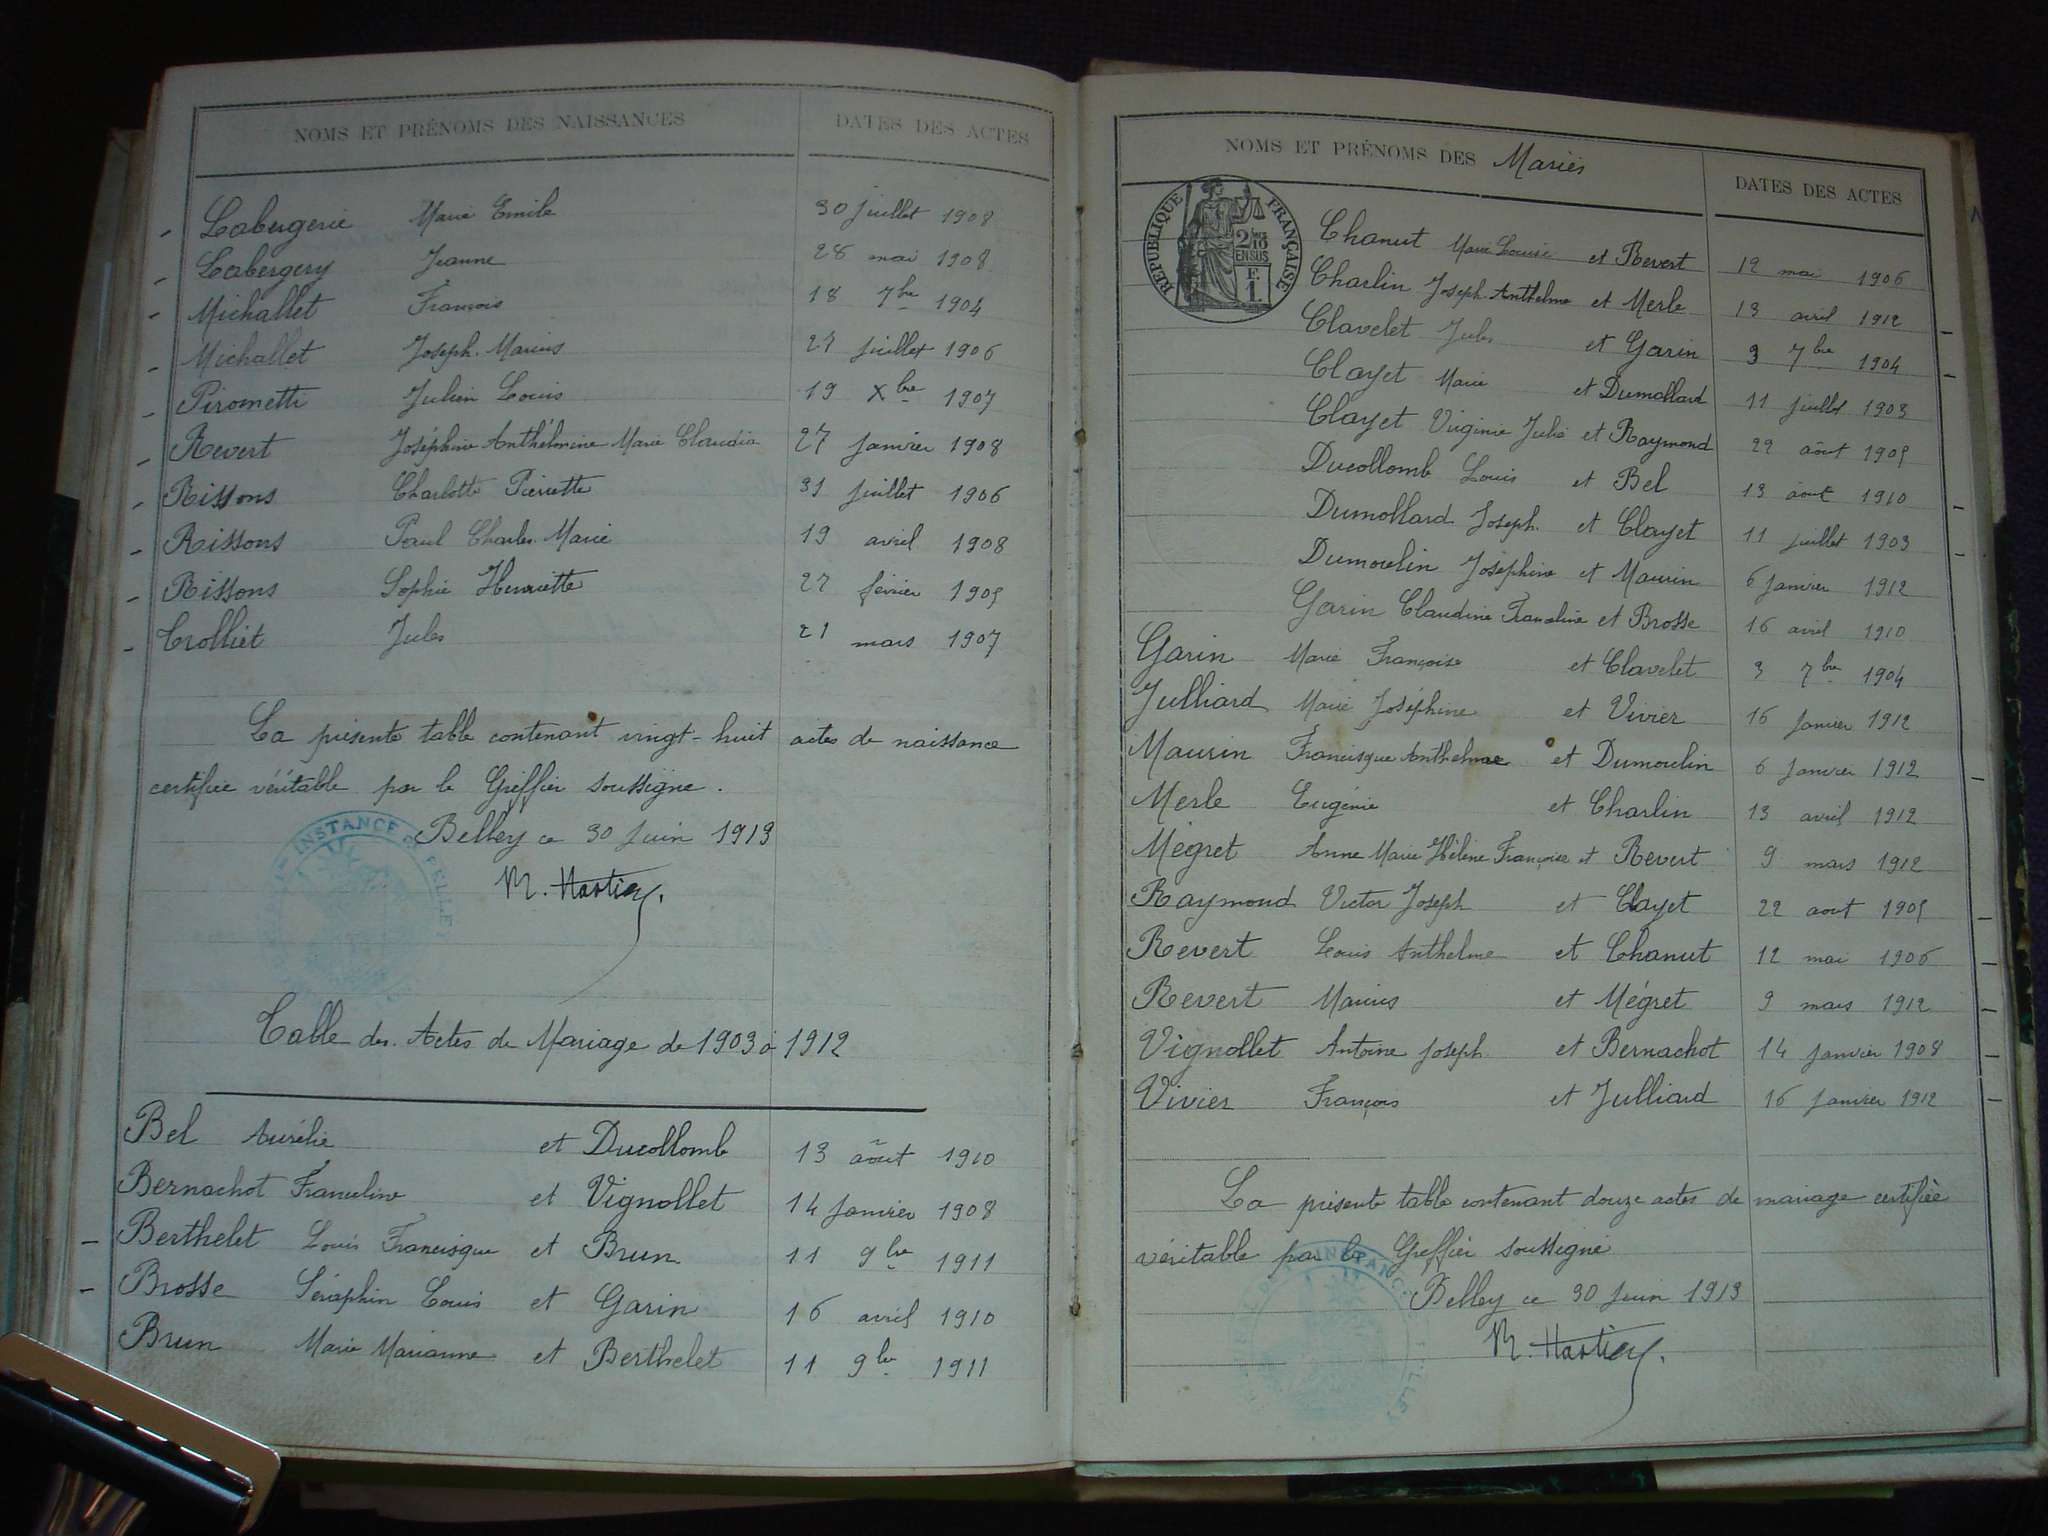 NOMS ET PRÉNOMS DES NAISSANCES DATES DES ACTES
Labergerie Marie Emile 30 juillet 1908
Labergery Jeanne 28 mai 1908
Michallet François 18 7bre 1904
Michallet Joseph Marius 27 juillet 1906
Pirometti Julien Louis 19 Xbre 1907
Revert Joséphine Anthelmine Marie Claudia 27 janvier 1908
Rissons Charlotte Pierrette 31 juillet 1906
Rissons Paul Charles Marie 19 avril 1908
Rissons Sophie Henriette 27 février 1905
Trolliet Jules 21 mars 1907
La présente table contenant vingt-huit actes de naissance
certifiée véritable par le Greffier soussigné.
Belley ce 30 juin 1913
Table des Actes de Mariage de 1903 à 1912
Bel Aurélie et Ducollomb 13 août 1910
Bernachot Franceline et Vignollet 14 janvier 1908
Berthelet Louis Francisque et Brun 11 9bre 1911
Brosse Séraphin Louis et Garin 16 avril 1910
Brun Marie Marianne et Berthelet 11 9bre 1911
NOMS ET PRÉNOMS DES Mariés DATES DES ACTES
RÉPUBLIQUE FRANÇAISE
2/10 EN SUS
F. 1.
Chanut Marie Louise et Revert 12 mai 1906
Charlin Joseph Anthelme et Merle 13 avril 1912
Clavelet Jules et Garin 3 7bre 1904
Clayet Marie et Dumollard 11 juillet 1903
Clayet Virginie Julie et Raymond 22 août 1905
Ducollomb Louis et Bel 13 août 1910
Dumollard Joseph et Clayet 11 juillet 1903
Dumoulin Joséphine et Maurin 6 janvier 1912
Garin Claudine Franceline et Brosse 16 avril 1910
Garin Marie Françoise et Clavelet 3 7bre 1904
Julliard Marie Joséphine et Vivier 16 janvier 1912
Maurin Francisque Anthelme et Dumoulin 6 janvier 1912
Merle Eugénie et Charlin 13 avril 1912
Mégret Anne Marie Hélène Françoise et Revert 9 mars 1912
Raymond Victor Joseph et Clayet 22 aout 1905
Revert Louis Anthelme et Chanut 12 mai 1906
Revert Marius et Mégret 9 mars 1912
Vignollet Antoine Joseph et Bernachot 14 janvier 1908
Vivier François et Julliard 16 janvier 1912
La présente table contenant douze actes de mariage certifiée
véritable par le Greffier soussigné
Belley ce 30 juin 1913